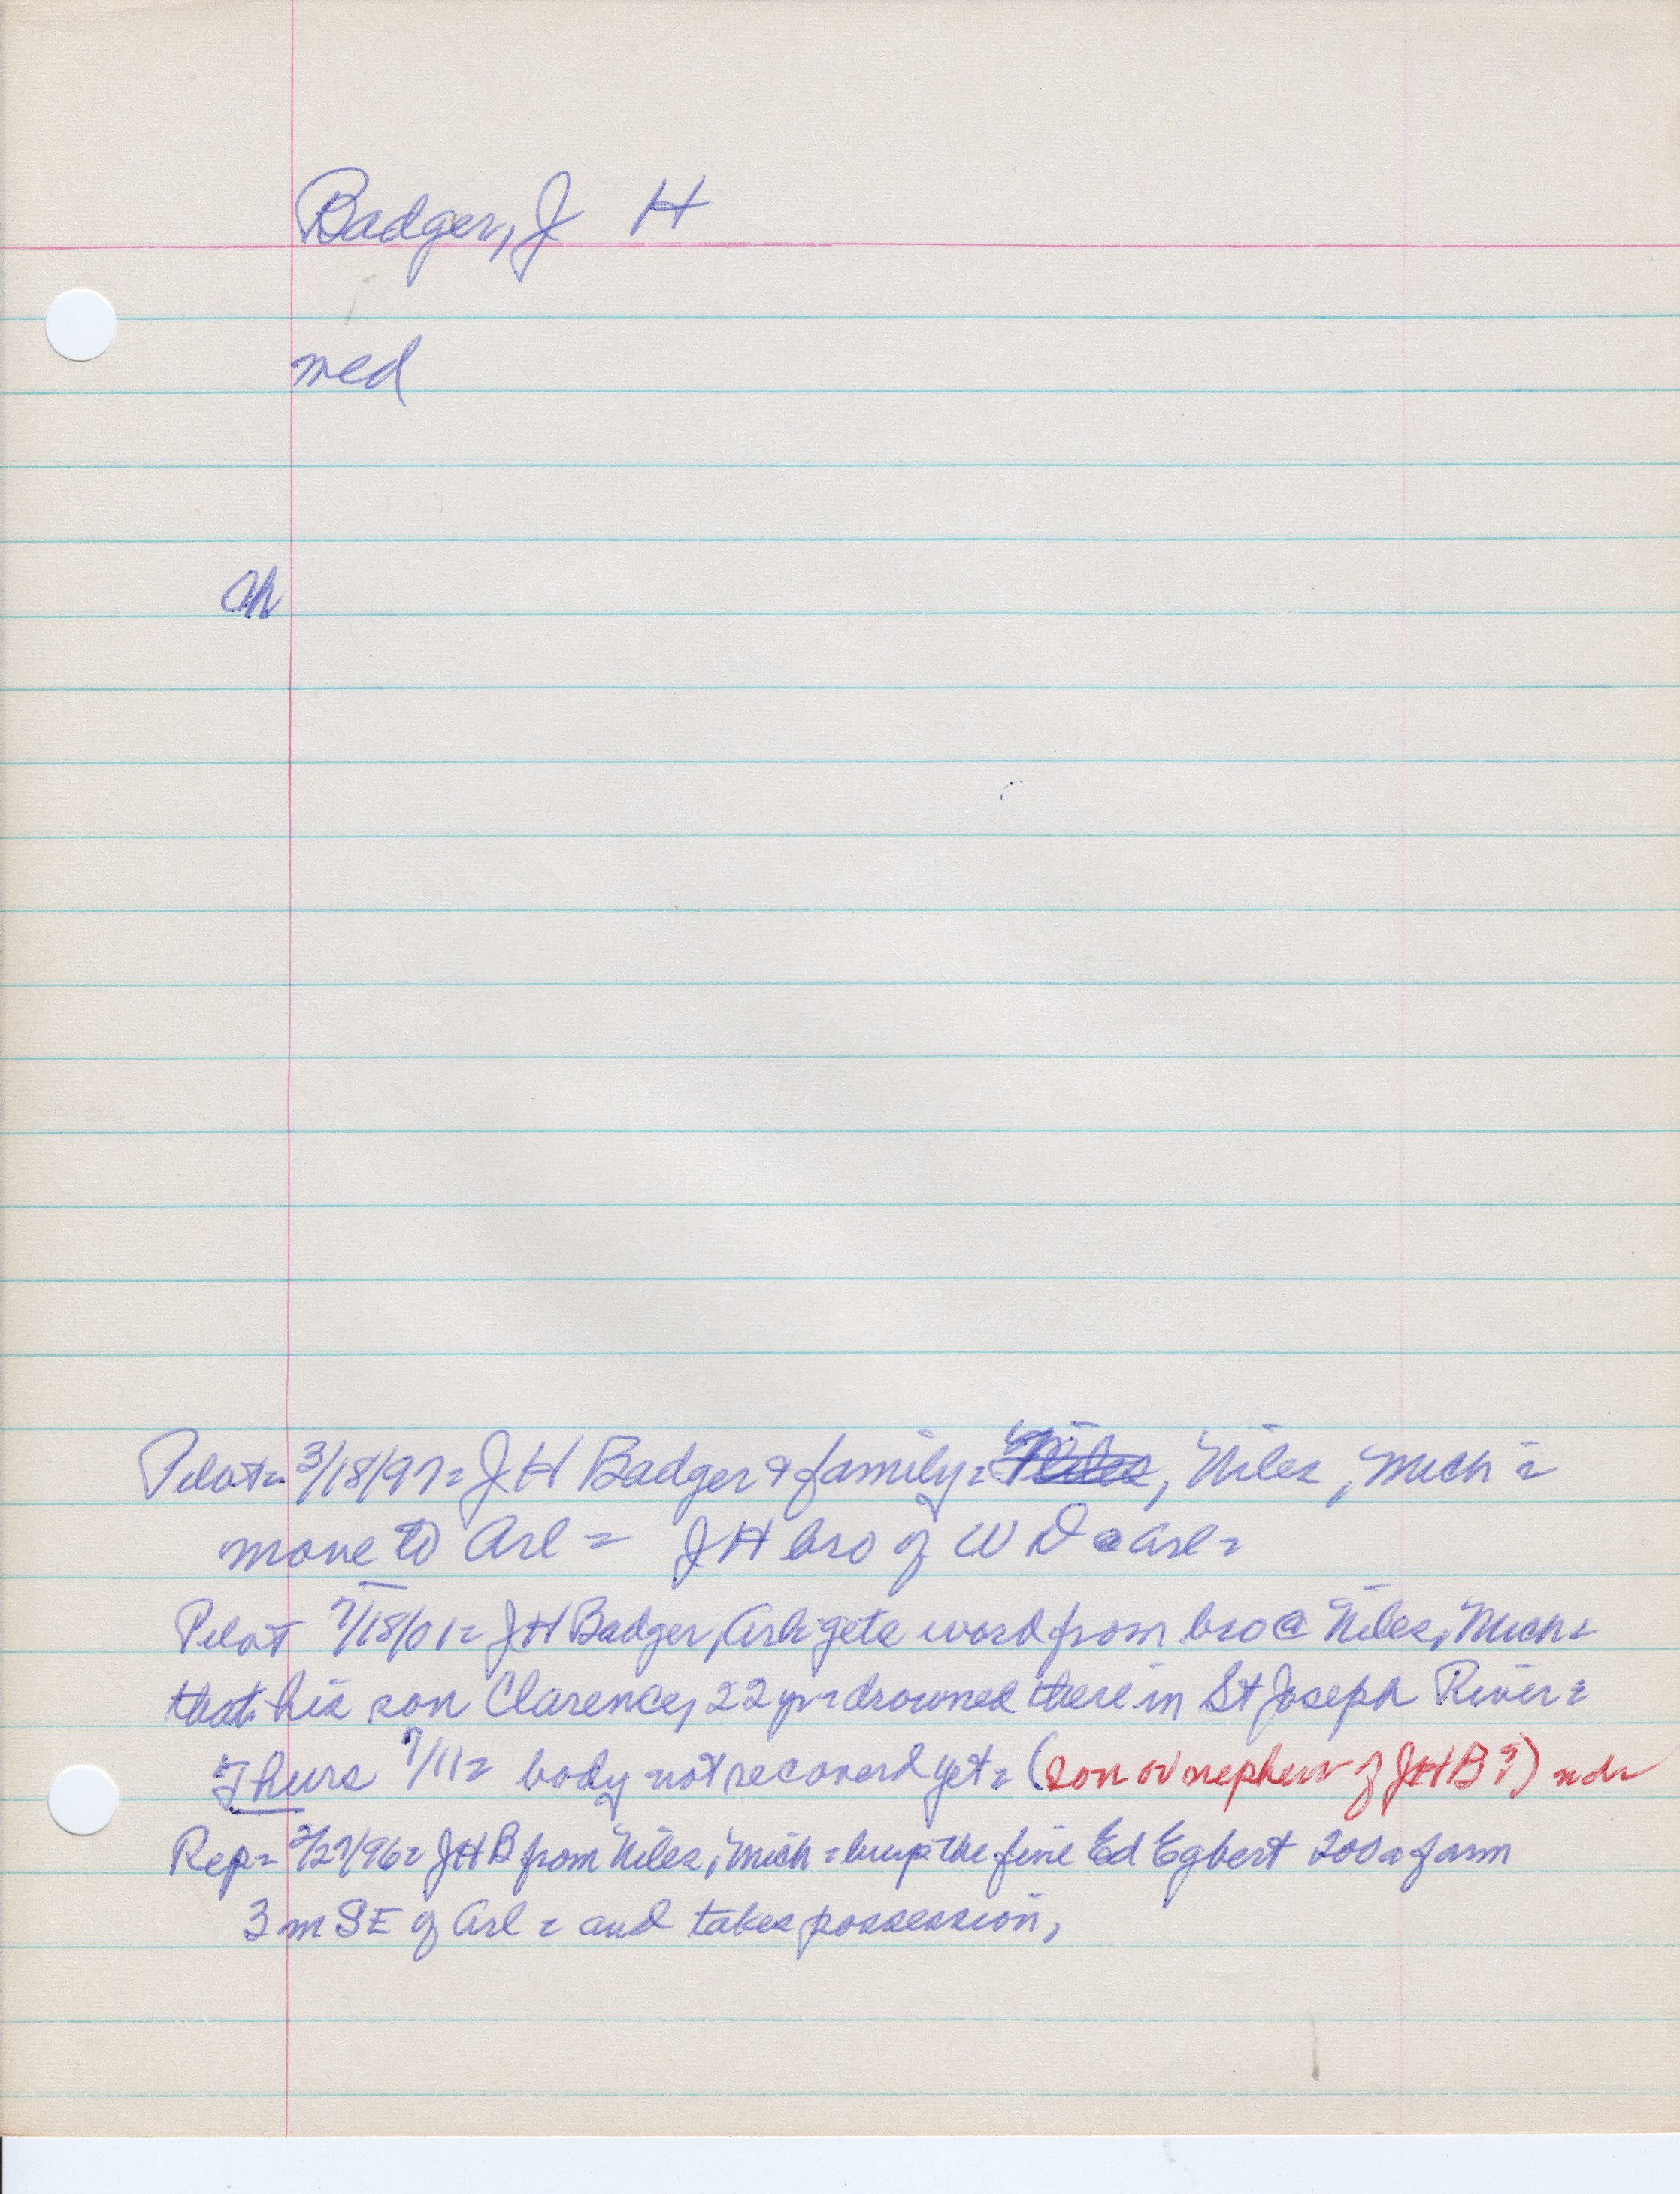 Badger, J H
med
Ch
Pilot= 3/18/97= J H Badger & family= Niles, Mich=
move to Arl = J H bro of W D @ Arl=
Pilot 7/18/01= JH Badger, Arl= gets word from bro @ Niles, Mich=
that his son Clarence, 22 yr= drowned there in St Joseph River=
Thurs 7/11= body not recoverd yet= (son or nephew of JHB?)
Rep= 2/27/96= JHB from Niles, Mich = buys the fine Ed Egbert 200a farm
3 m SE of Arl = and takes possession,